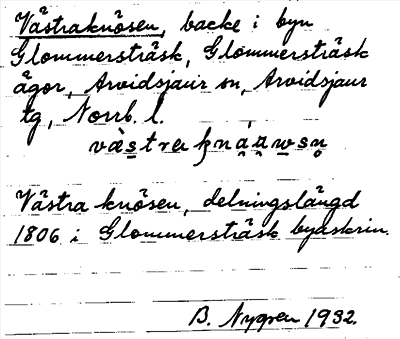 Västraknösen, backe i byn
Glommersträsk, Glommersträsk
ägor, Arvidsjaur sn, Arvidsjaur
tg, Norrb. l.
Västra knösen, delningslängd
1806 i Glommersträsk byaskrin.
B. Nygren 1932.